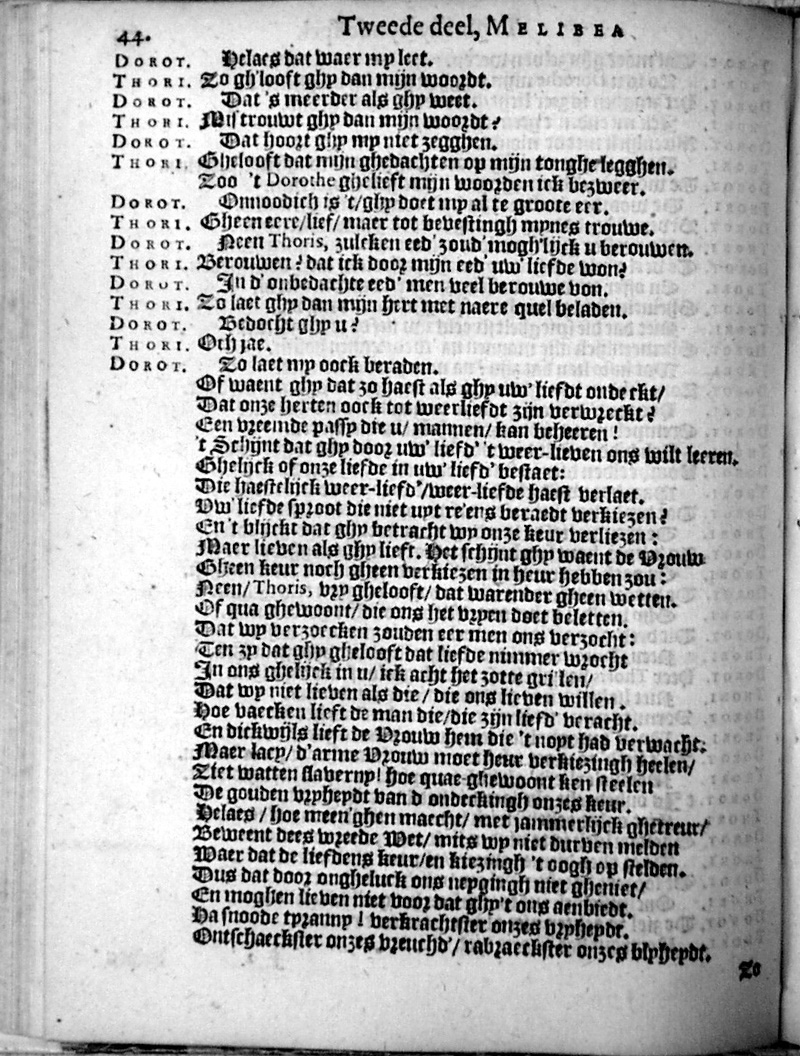 44. Tweede deel, MELIBEA
DOROT. Helaes dat waer my leet.
THORI. Zo gh'looft ghy dan mijn woordt.
DOROT. Dat 's meerder als ghy weet.
THORI. Mistrouwt ghy dan mijn woordt?
DOROT. Dat hoort ghy my niet zegghen.
THORI. Ghelooft dat mijn ghedachten op mijn tonghe legghen.
Zoo 't Dorothe ghelieft mijn woorden ick bezweer.
DOROT. Onnoodich is 't/ghy doet my al te groote eer.
THORI. Gheen eere/lief/ maer tot bevestingh mynes trouwe.
DOROT. Neen Thoris, zulcken eed' zoud' mogh'lijck u berouwen.
THORI. Berouwen? dat ick door mijn eed' uw' liefde won?
DOROT. In d'onbedachte eed' men veel berouwe von.
THORI. Zo laet ghy dan mijn hert met naere quel beladen.
DOROT. Bedocht ghy u?
THORI. Och jae.
DOROT. Zo laet my oock beraden.
Of waent ghy dat zo haest als ghy uw' liefdt ondeckt/
Dat onze herten oock tot weerliefdt zijn verwreckt?
Een vreemde passy die u/ mannen/ kan beheeren!
't Schijnt dat ghy door uw' liefd' 't weer-lieven ons wilt leeren.
Ghelijck of onze liefde in uw' liefd' bestaet:
Die haestelijck weer-liefd'/weer-liefde haest verlaet.
Uw' liefde sproot die niet uyt re'ens beraedt verkiezen?
En 't blijckt dat ghy betracht wy onze keur verliezen:
Maer lieven als ghy lieft. Het schijnt ghy waent de Vrouw
Gheen keur noch gheen verkiezen in heur hebben zou:
Neen/ Thoris, vry ghelooft/ dat warender gheen wetten.
Of qua ghewoont/ die ons het vryen doet beletten.
Dat wy verzoecken zouden eer men ons verzocht:
Ten zy dat ghy ghelooft dat liefde nimmer wrocht
In ons ghelijck in u/ ick acht het zotte grillen/
Dat wy niet lieven als die/ die ons lieven willen.
Hoe vaecken lieft de man die/die zijn liefd' veracht.
En dickwijls lieft de Vrouw hem die 't noyt had verwacht.
Maer lacy/ d'arme Vrouw moet heur verkiezingh heelen/
Ziet watten slaverny! hoe quae ghewoont ken steelen
De gouden vryheydt van d'ondeckingh onzes keur.
Helaes/ hoe meen'ghen maecht/ met jammerlijck ghetreur/
Beweent dees wreede Wet/ mits wy niet durven melden
Waer dat de liefdens keur/en kiezingh 't oogh op stelden.
Dus dat door ongheluck ons neygingh niet gheniet/
En moghen lieven niet voor dat ghy't ons aenbiedt.
Ha snoode tyranny! verkrachtster onzes vryheydt.
Ontschaeckster onzes vreuchd'/ rabraeckster onzes blyheydt.
Zo